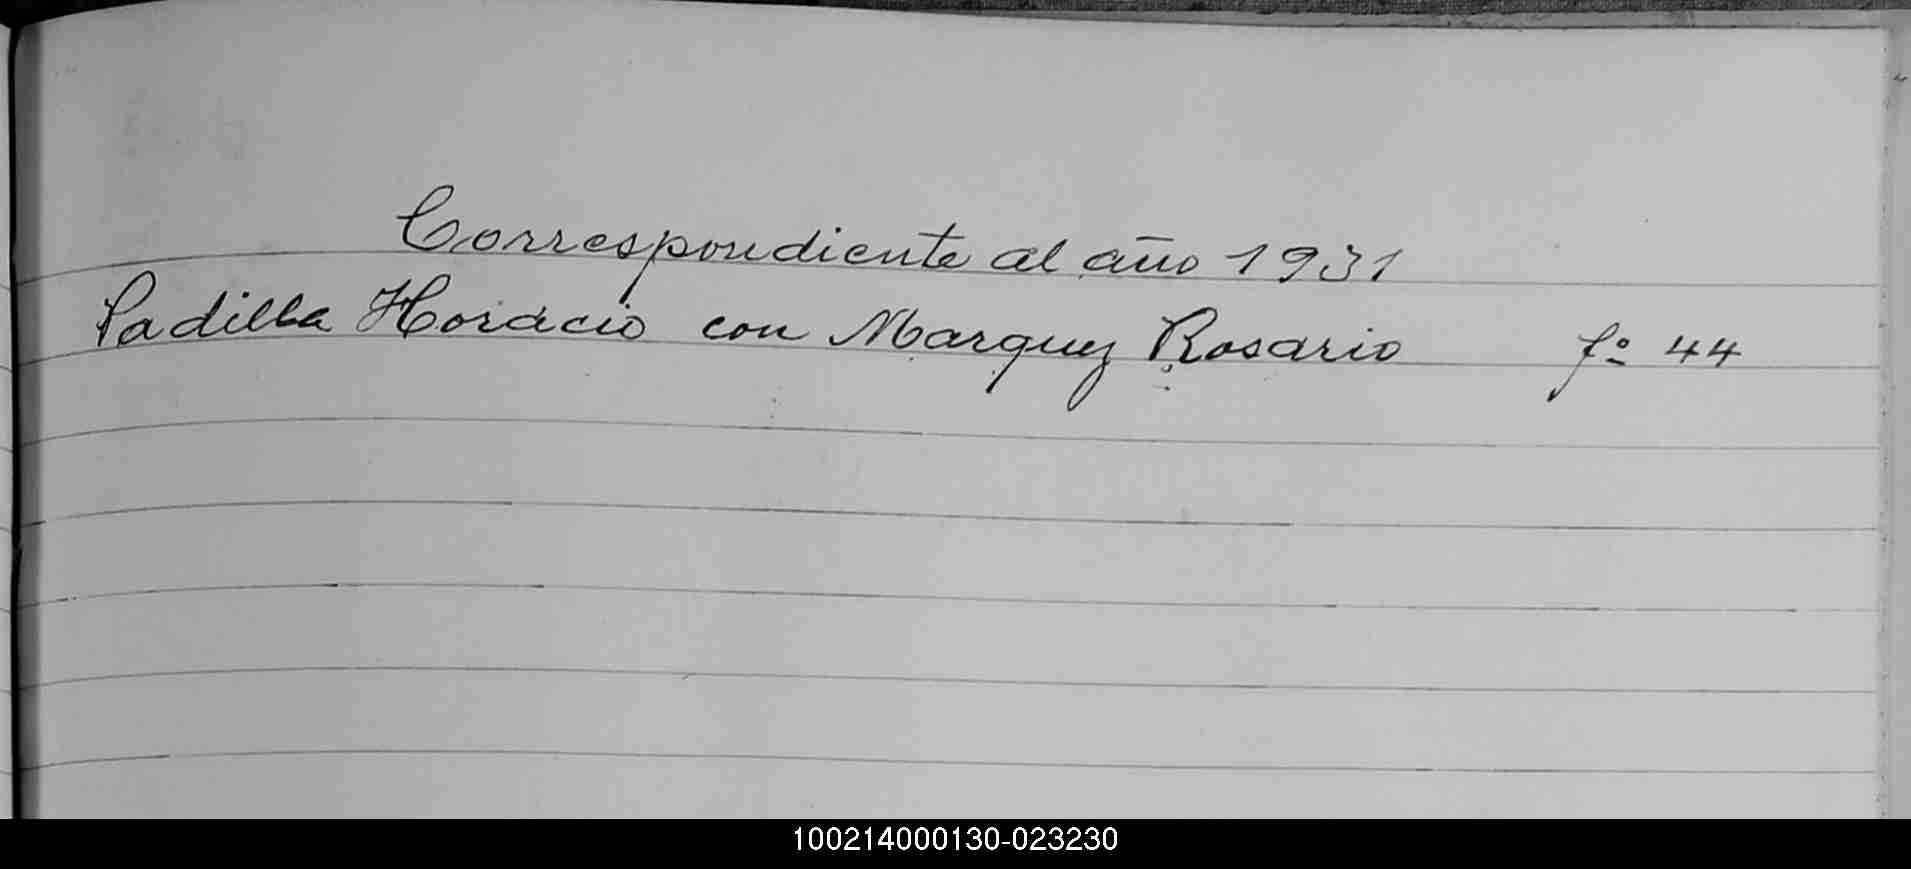 Correspondiente al año 1931
Padilla Horacio con Marquez Rosario fº 44
100214000130-023230